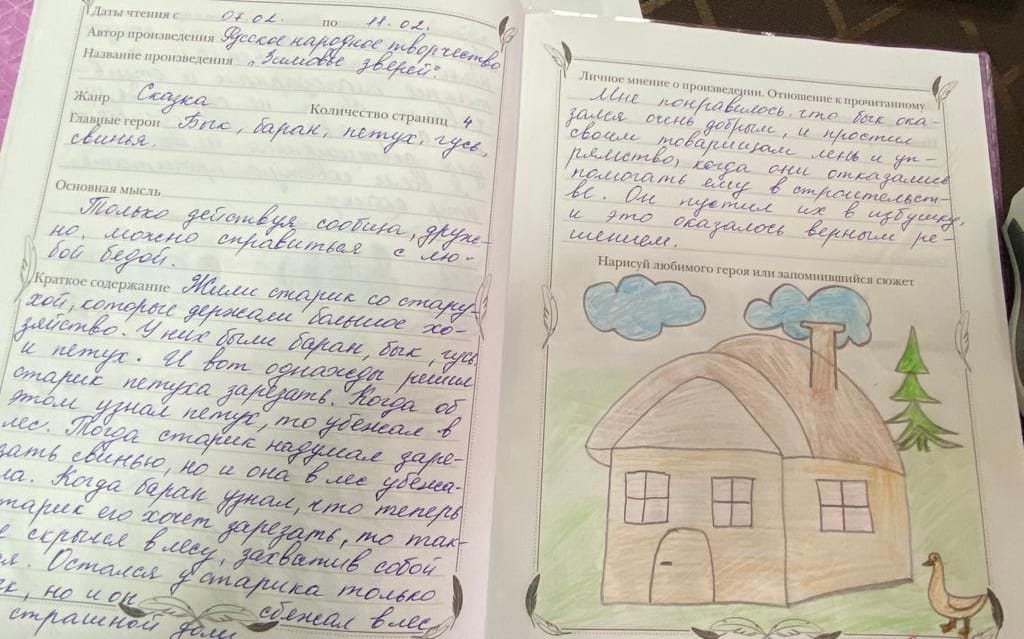 Даты чтения с 07.02. по 11.02.
Автор произведения Русское народное творчество
Название произведения „Зимовье зверей".
Жанр Сказка Количество страниц 4
Главные герои Бык, баран, петух, гусь,
свинья.
Основная мысль
Только действуя сообща, друж-
но, можно справиться с лю-
бой бедой.
Краткое содержание Жили старик со стару-
хой, которые держали большое хо-
зяйство. У них были баран, бык, гусь
и петух. И вот однажды решил
старик петуха зарезать. Когда об
этом узнал петух, то убежал в
лес. Тогда старик надумал заре-
зать свинью, но и она в лес убежа-
ла. Когда баран узнал, что теперь
старик его хочет зарезать, то так-
е скрылся в лесу, захватив собой
я. Остался у старика только
к, но и он сбежал в лес
страшной доли
Личное мнение о произведении. Отношение к прочитанному
Мне понравилось, что бык ока-
зался очень добрым, и простил
своим товарищам лень и уп-
рямство, когда они отказались
помогать ему в строительст-
ве. Он пустил их в избушку,
и это оказалось верным ре-
шением.
Нарисуй любимого героя или запомнившийся сюжет